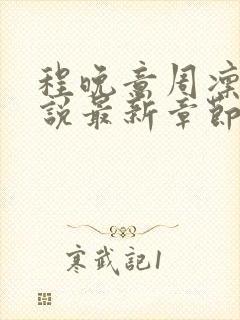 程晚意周凛
説最新章節
寒武記1